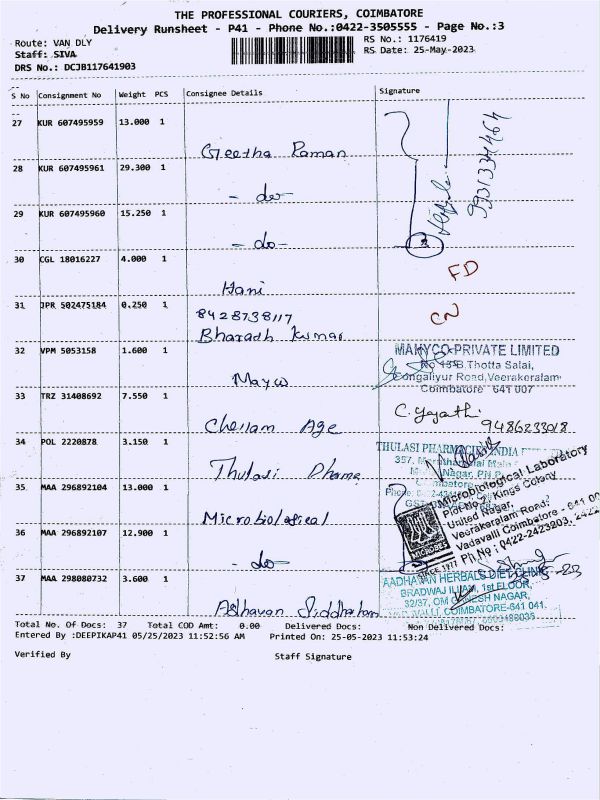 THE PROFESSIONAL COURIERS, COIMBATORE
Delivery Runsheet - P41 - Phone No.:0422-3505555 - Page No.:3
Route: VAN DLY
RS No.: 1176419
Staff: SIVA
RS Date: 25-May-2023
DRS No.: DCJB117641903
S No Consignment No Weight PCS Consignee Details Signature
27 KUR 607495959 13.000 1
Geetha Raman
28 KUR 607495961 29.300 1
- do -
29 KUR 607495960 15.250 1
- do -
30 CGL 18016227 4.000 1
FD
Hani
31 JPR 502475184 0.250 1
8428738117
CN
Bharadh Kumar
32 VPM 5053158 1.600 1
PRIVATE LIMITED
Thotta Salai,
Road, Veerakeralam
Coimbatore 641 007
33 TRZ 31408692 7.550 1
9486233018
34 POL 2220878 3.150 1
THULASI INDIA
357,
Nagar, PN
Thulasi Pharma
35 MAA 296892104 13.000 1
Microbiological Laboratory
Plot No 7, Kings Colony
United Nagar,
Veerakeralam Road,
Vadavalli Coimbatore - 641 00
Ph No : 0422-2423203, 242
SINCE 1977
Microbiological
36 MAA 296892107 12.900 1
- do -
37 MAA 298080732 3.600 1
AADHAVAN HERBALS DIET CLINIC
1st FLOOR,
32/37, OM GANESH NAGAR,
COIMBATORE-641 041.
Total No. Of Docs: 37 Total COD Amt: 0.00 Delivered Docs: Non Delivered Docs:
Entered By :DEEPIKAP41 05/25/2023 11:52:56 AM Printed On: 25-05-2023 11:53:24
Verified By Staff Signature